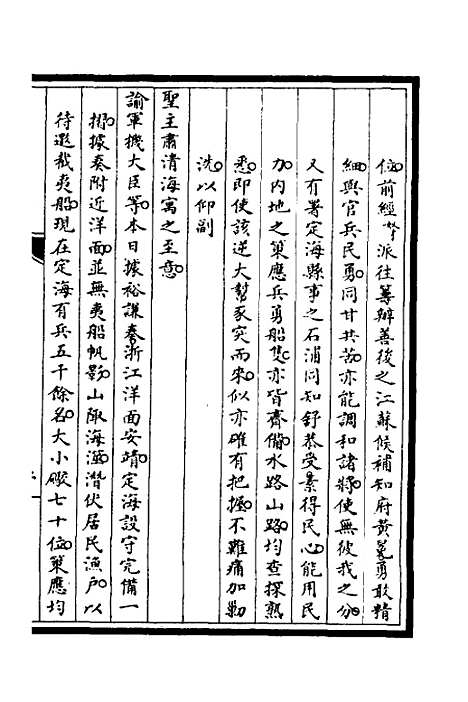 位前經奴才派往籌辦善後之江蘇候補知府黃冕勇敢精
細與官兵民勇同甘共苦亦能調和諸將使無彼我之分
又有署定海縣事之石浦同知舒恭受素得民心能用民
力內地之策應兵勇船隻亦皆齊備水路山路均查探熟
悉即使該逆大幫豕突而來似亦確有把握不難痛加勦
洗以仰副
聖主肅清海㝢之至意
諭軍機大臣等本日據裕謙奏浙江洋面安靖定海設守完備一
摺據奏附近洋面並無夷船帆影山陬海澨潛伏居民漁戶以
待邀截夷船現在定海有兵五千餘名大小礮七十位策應均